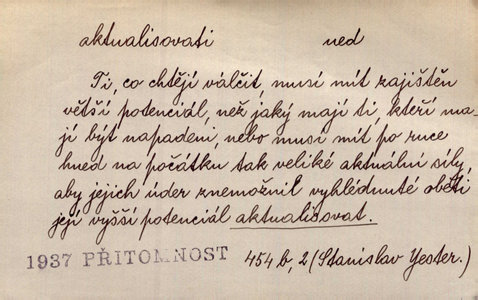 aktualisovati ned
Ti, co chtějí válčit, musí mít zajištěn
větší potenciál, než jaký mají ti, kteří ma-
jí být napadeni, nebo musí mít po ruce
hned na počátku tak veliké aktuální síly,
aby jejich úder znemožnil vyhlédnuté oběti
její vyšší potenciál aktualisovat.
1937 PŘITOMNOST 454 b, 2 (Stanislav Yester.)